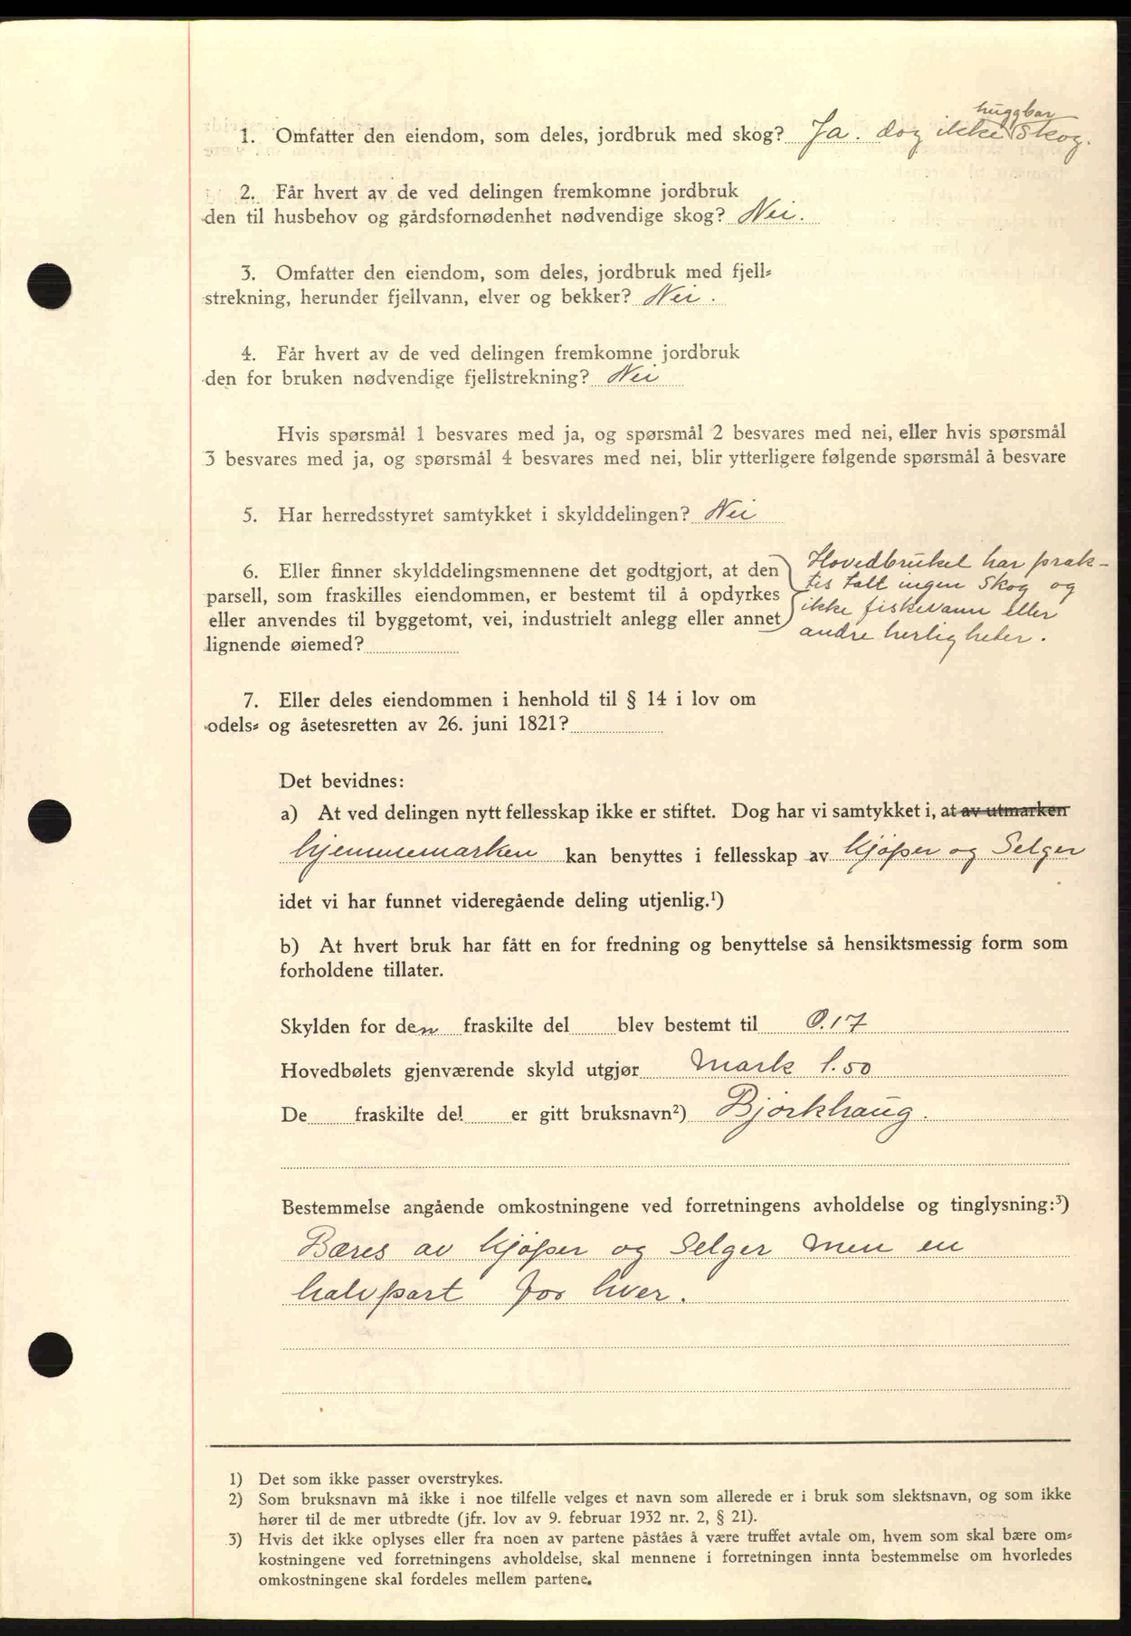 huggbar
1. Omfatter den eiendom, som deles, jordbruk med skog? Ja. dog ikke Skog.
2. Får hvert av de ved delingen fremkomne jordbruk
den til husbehov og gårdsfornødenhet nødvendige skog? Nei.
3. Omfatter den eiendom, som deles, jordbruk med fjell=
strekning, herunder fjellvann, elver og bekker? Nei.
4. Får hvert av de ved delingen fremkomne jordbruk
den for bruken nødvendige fjellstrekning? Nei
Hvis spørsmål 1 besvares med ja, og spørsmål 2 besvares med nei, eller hvis spørsmål
3 besvares med ja, og spørsmål 4 besvares med nei, blir ytterligere følgende spørsmål å besvare
5. Har herredsstyret samtykket i skylddelingen? Nei
6. Eller finner skylddelingsmennene det godtgjort, at den
parsell, som fraskilles eiendommen, er bestemt til å opdyrkes
eller anvendes til byggetomt, vei, industrielt anlegg eller annet
lignende øiemed?
Hovedbruket har prak-
tis talt ingen Skog og
ikke fiskevann eller
andre herligheter.
7. Eller deles eiendommen i henhold til § 14 i lov om
odels= og åsetesretten av 26. juni 1821?
Det bevidnes:
a) At ved delingen nytt fellesskap ikke er stiftet. Dog har vi samtykket i, at av utmarken
hjemmemarken kan benyttes i fellesskap av kjøper og Selger
idet vi har funnet videregående deling utjenlig.¹)
b) At hvert bruk har fått en for fredning og benyttelse så hensiktsmessig form som
forholdene tillater.
Skylden for den fraskilte del blev bestemt til 0.17
Hovedbølets gjenværende skyld utgjør mark 1.50
De fraskilte del er gitt bruksnavn²) Bjørkhaug.
Bestemmelse angående omkostningene ved forretningens avholdelse og tinglysning:³)
Bæres av kjøper og Selger men en
halvpart for hver.
1) Det som ikke passer overstrykes.
2) Som bruksnavn må ikke i noe tilfelle velges et navn som allerede er i bruk som slektsnavn, og som ikke
hører til de mer utbredte (jfr. lov av 9. februar 1932 nr. 2, § 21).
3) Hvis det ikke oplyses eller fra noen av partene påståes å være truffet avtale om, hvem som skal bære om=
kostningene ved forretningens avholdelse, skal mennene i forretningen innta bestemmelse om hvorledes
omkostningene skal fordeles mellem partene.